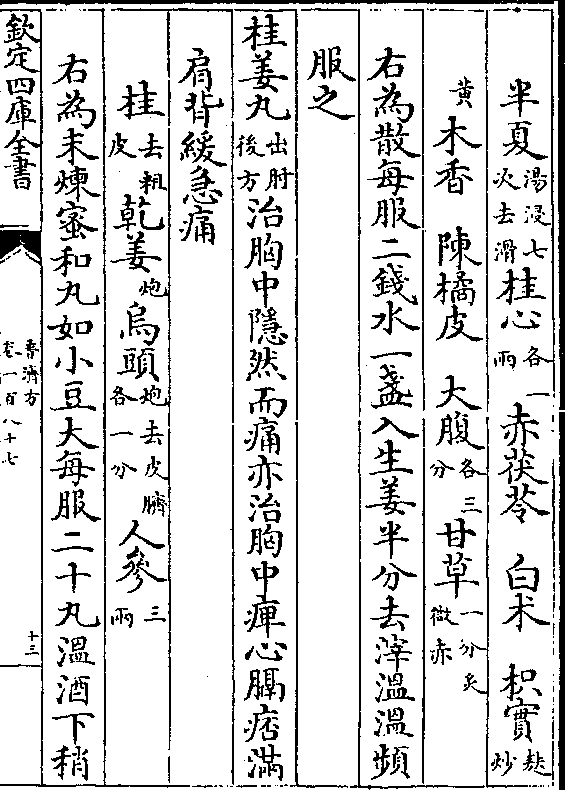 半夏湯浸七次去滑桂心各一兩赤茯苓 白朮 枳實麩炒
黄木香 陳橘皮 大腹各三分甘草一分炙微赤
右為散每服二錢水一盞入生姜半分去滓溫溫頻
服之
桂姜丸出肘後方治胸中隱然而痛亦治胸中痺心膈痞滿
肩背緩急痛
桂去粗皮乾姜炮烏頭炮去皮臍各一分人參三兩
右為末煉蜜和丸如小豆大每服二十丸溫酒下稍
欽定四庫全書
普濟方
卷一百八十七
十三